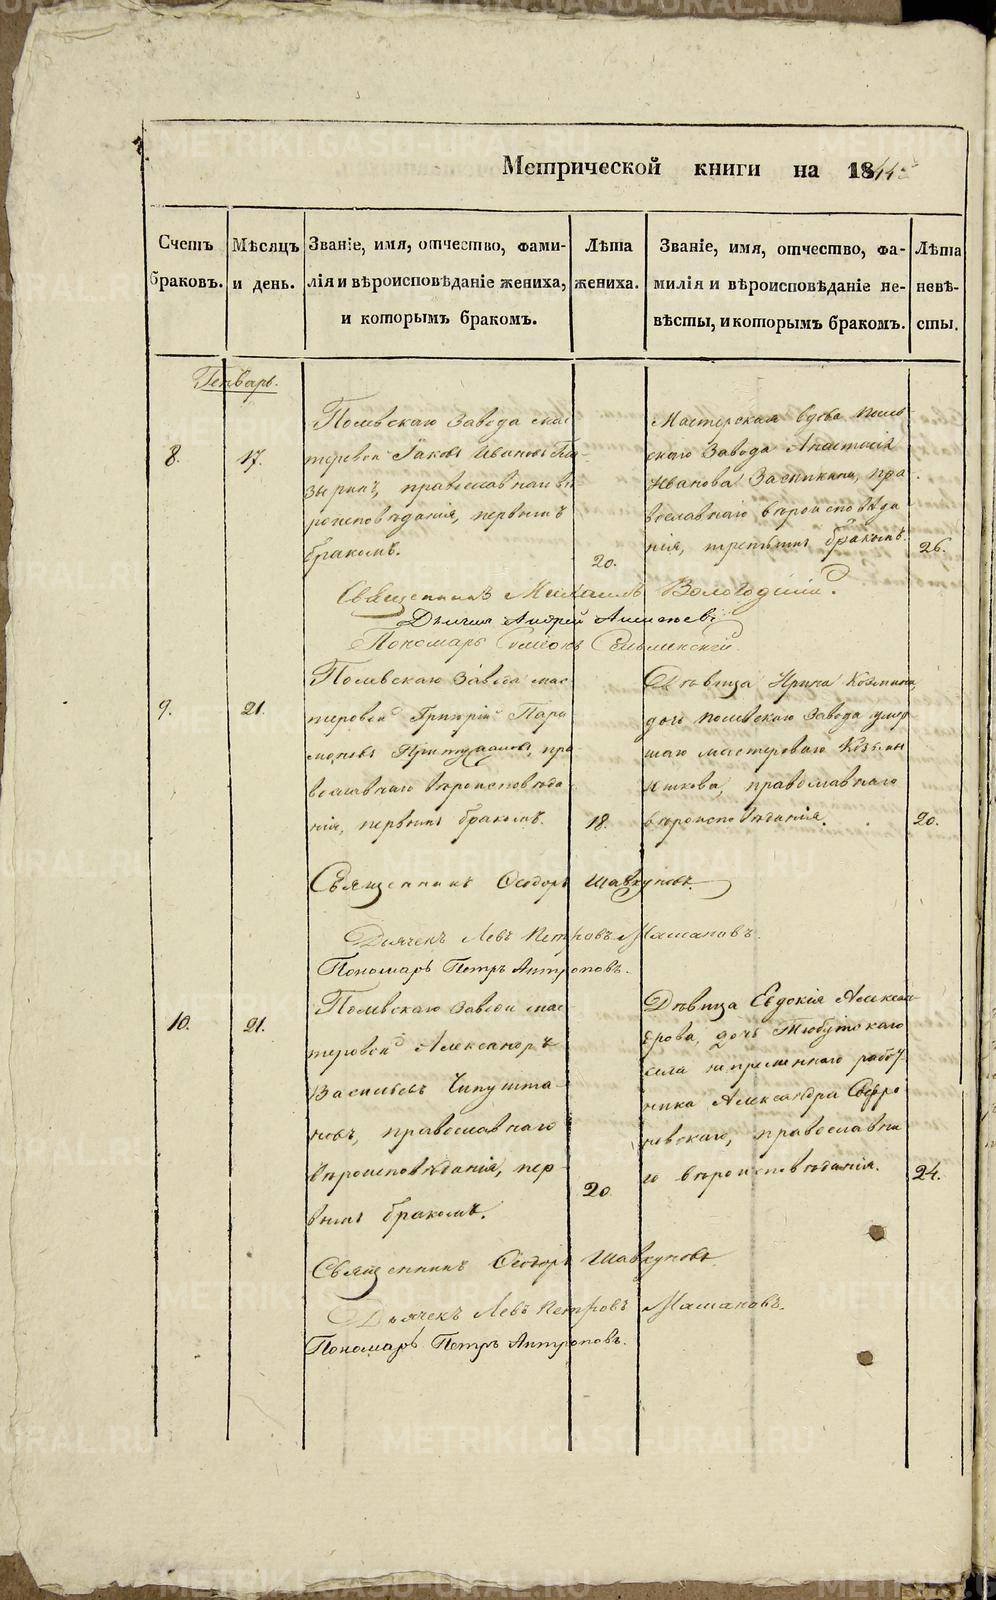 Метрической книги на 1844
Счетъ браковъ.
Мѣсяцъ и день.
Званіе, имя, отчество, фами-
лія и вѣроисповѣданіе жениха,
и которымъ бракомъ.
Лѣта жениха.
Званіе, имя, отчество, фа-
милія и вѣроисповѣданіе не-
вѣсты, и которымъ бракомъ.
Лѣта невѣ-
сты.
Генварь.
8.
17.
Полевскаго завода мас
теровой Іаковъ Ивановъ
православнаго вѣ
роисповѣданія, первымъ
бракомъ.
20.
Мастерская вдова Полев
скаго завода Анастасія
Иванова пра
вославнаго вѣроисповѣда
нія, третьимъ бракомъ.
26.
Священникъ Михаилъ Вологодскій.
Дьячекъ Андрей
Пономарь Симеонъ
9.
21.
Полевскаго завода мас
теровой Григорій Пара
моновъ пра
вославнаго вѣроисповѣда
нія, первымъ бракомъ.
18.
Дѣвица Ирина Козмина,
дочь Полевскаго завода умер
шаго мастероваго Козьмы
православнаго
вѣроисповѣданія.
20.
Священникъ Ѳеодоръ Шавкуновъ.
Дьячекъ Левъ Петровъ Мамановъ.
Пономарь Петръ Антроповъ.
10.
21.
Полевскаго завода мас
теровой Александръ
Васильевъ Чипушта
новъ, православнаго
вѣроисповѣданія, пер
вымъ бракомъ.
20.
Дѣвица Евдокія Алексан
дрова, дочь Тюбукскаго
села непременнаго работ
ника Александра Сафро
новскаго, православна
го вѣроисповѣданія.
24.
Священникъ Ѳеодоръ Шавкуновъ.
Дьячекъ Левъ Петровъ Мамановъ.
Пономарь Петръ Антроповъ.
METRIKI.GASO-URAL.RU